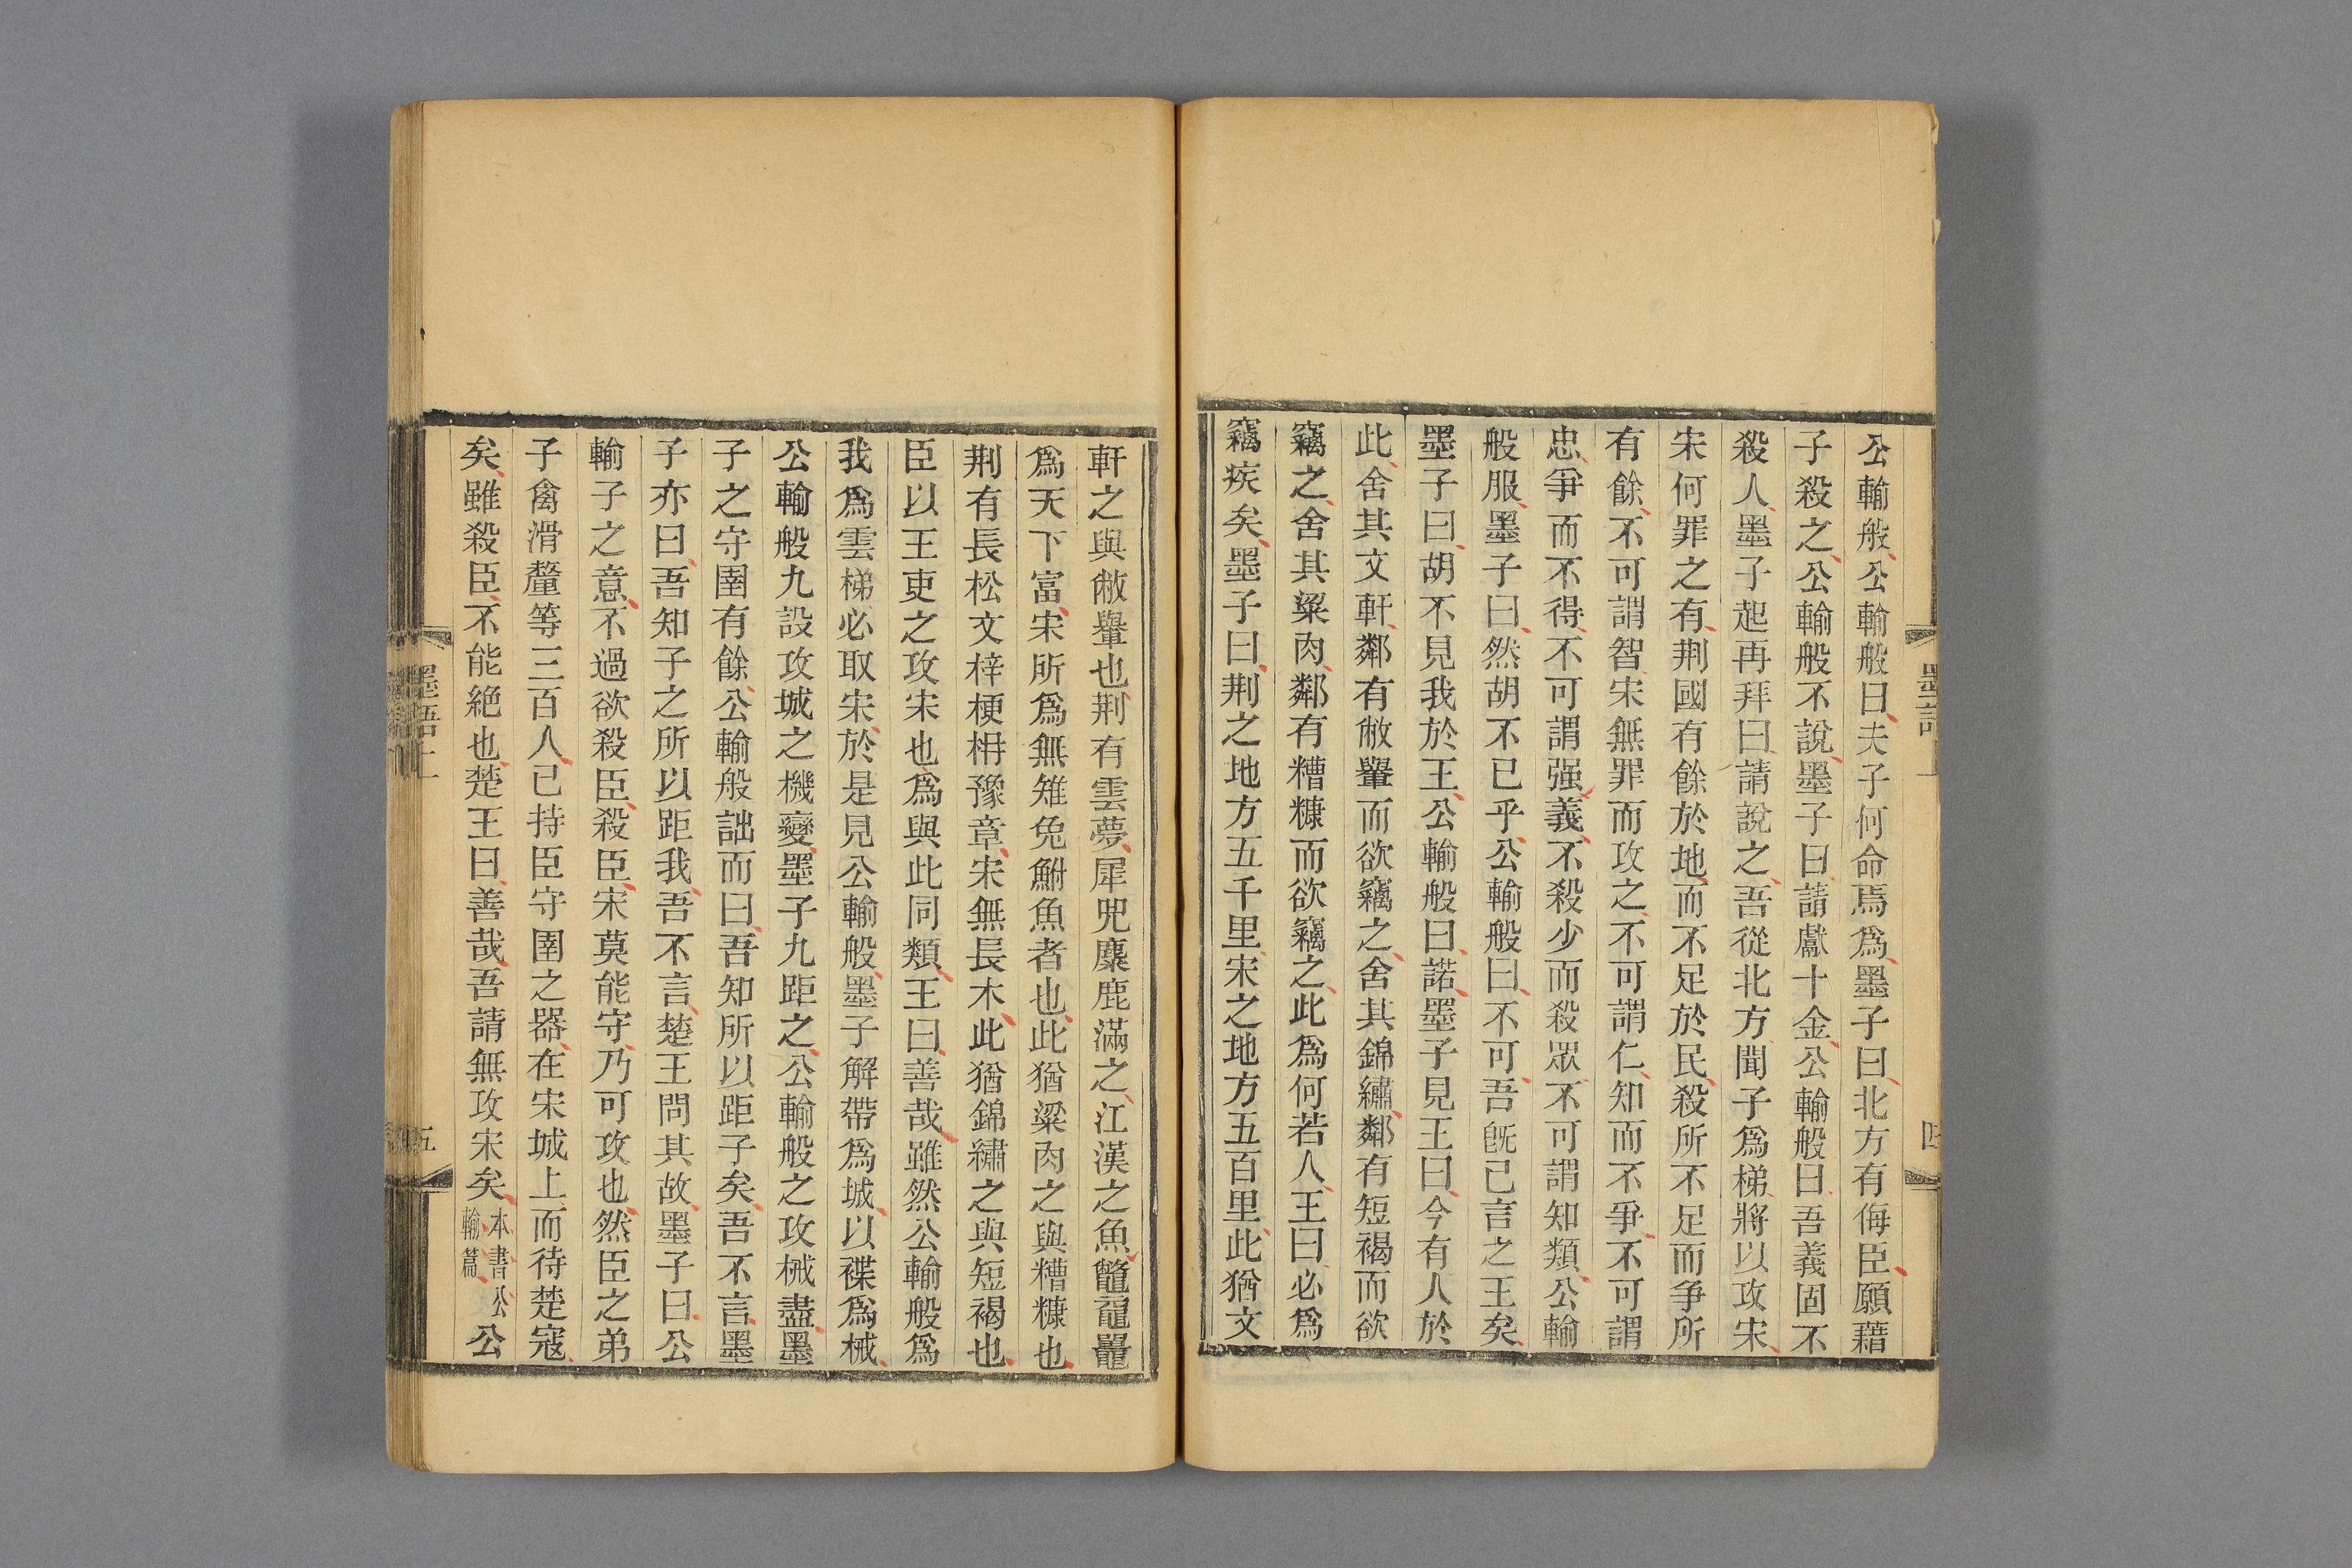 公輸般公輸般曰夫子何命焉爲墨子曰北方有侮臣願藉
子殺之公輸般不說墨子曰請獻十金公輸般曰吾義固不
殺人墨子起再拜曰請說之吾從北方聞子爲梯將以攻宋
宋何罪之有荆國有餘於地而不足於民殺所不足而爭所
有餘不可謂智宋無罪而攻之不可謂仁知而不爭不可謂
忠爭而不得不可謂强義不殺少而殺眾不可謂知類公輸
般服墨子曰然胡不已乎公輸般曰不可吾旣已言之王矣
墨子曰胡不見我於王公輸般曰諾墨子見王曰今有人於
此舍其文軒鄰有敝轝而欲竊之舍其錦繡鄰有短褐而欲
竊之舍其粱肉鄰有糟糠而欲竊之此爲何若人王曰必爲
竊疾矣墨子曰荆之地方五千里宋之地方五百里此猶文
墨語上
四
軒之與敝轝也荆有雲夢犀兕麋鹿滿之江漢之魚鼈黿鼉
爲天下富宋所爲無雉兔鮒魚者也此猶粱肉之與糟糠也
荆有長松文梓楩枏豫章宋無長木此猶錦繡之與短褐也
臣以王吏之攻宋也爲與此同類王曰善哉雖然公輸般爲
我爲雲梯必取宋於是見公輸般墨子解帶爲城以褋爲械
公輸般九設攻城之機變墨子九距之公輸般之攻械盡墨
子之守圉有餘公輸般詘而曰吾知所以距子矣吾不言墨
子亦曰吾知子之所以距我吾不言楚王問其故墨子曰公
輸子之意不過欲殺臣殺臣宋莫能守乃可攻也然臣之弟
子禽滑釐等三百人已持臣守圉之器在宋城上而待楚寇
矣雖殺臣不能絕也楚王曰善哉吾請無攻宋矣本書公輸篇公
墨語上
五